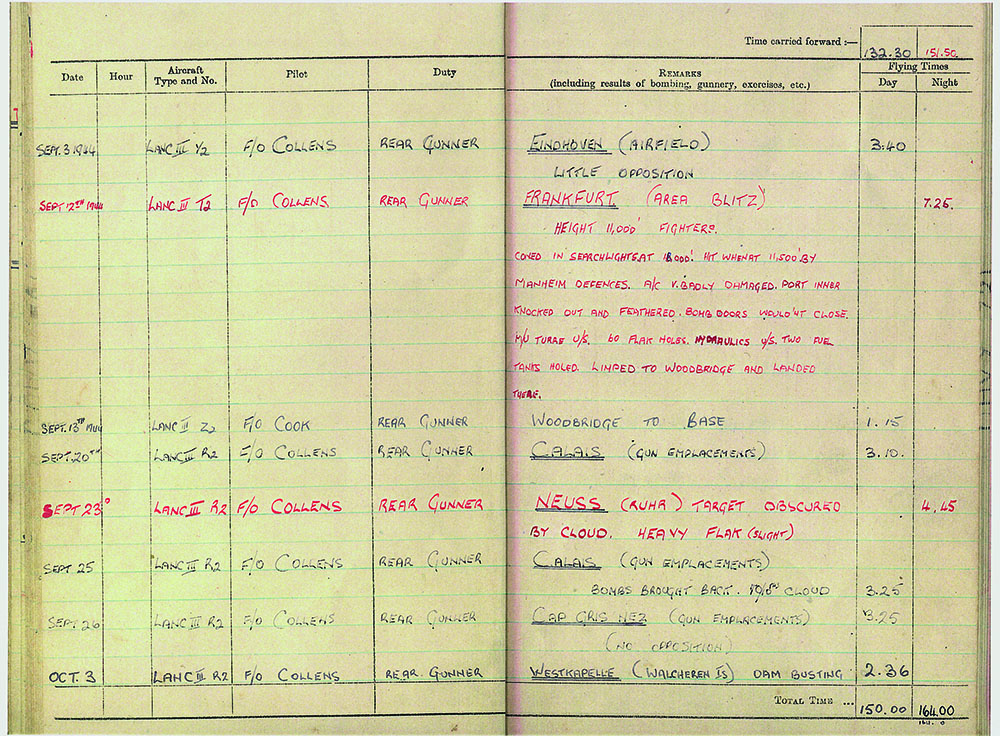 Time carried forward :— 132.30 151.50
Date Hour Aircraft Type and No. Pilot Duty REMARKS (including results of bombing, gunnery, exercises, etc.) Flying Times Day Night
SEPT. 3 1944 LANC III Y2 F/O COLLENS REAR GUNNER EINDHOVEN (AIRFIELD) 3.40
LITTLE OPPOSITION
SEPT 12TH 1944 LANC III T2 F/O COLLENS. REAR GUNNER FRANKFURT (AREA BLITZ) 7.25.
HEIGHT 11,000' FIGHTERS.
CONED IN SEARCHLIGHTS AT 18000'. HIT WHEN AT 11,500' BY
MANHEIM DEFENCES. A/C V. BADLY DAMAGED. PORT INNER
KNOCKED OUT AND FEATHERED. BOMB DOORS WOULD'NT CLOSE.
M/U TURRE U/S. 60 FLAK HOLES. HYDRAULICS U/S. TWO FUEL
TANKS HOLED. LIMPED TO WOODBRIDGE AND LANDED
THERE.
SEPT. 13TH 1944 LANC III Z2 F/O COOK REAR GUNNER WOODBRIDGE TO BASE 1.15
SEPT. 20TH LANC III R2 F/O COLLENS REAR GUNNER CALAIS (GUN EMPLACEMENTS) 3.10.
SEPT 23 LANC III R2 F/O COLLENS REAR GUNNER NEUSS (RUHR) TARGET OBSCURED 4.45
BY CLOUD. HEAVY FLAK (SLIGHT)
SEPT 25 LANC III R2 F/O COLLENS REAR GUNNER CALAIS (GUN EMPLACEMENTS)
BOMBS BROUGHT BACK. CLOUD 3.25
SEPT. 26 LANC III R2 F/O COLLENS REAR GUNNER CAP GRIS NEZ (GUN EMPLACEMENTS) 3.25
(NO OPPOSITION)
OCT. 3 LANC III R2 F/O COLLENS REAR GUNNER WESTKAPELLE (WALCHEREN IS) DAM BUSTING 2.36
TOTAL TIME ... 150.00 164.00